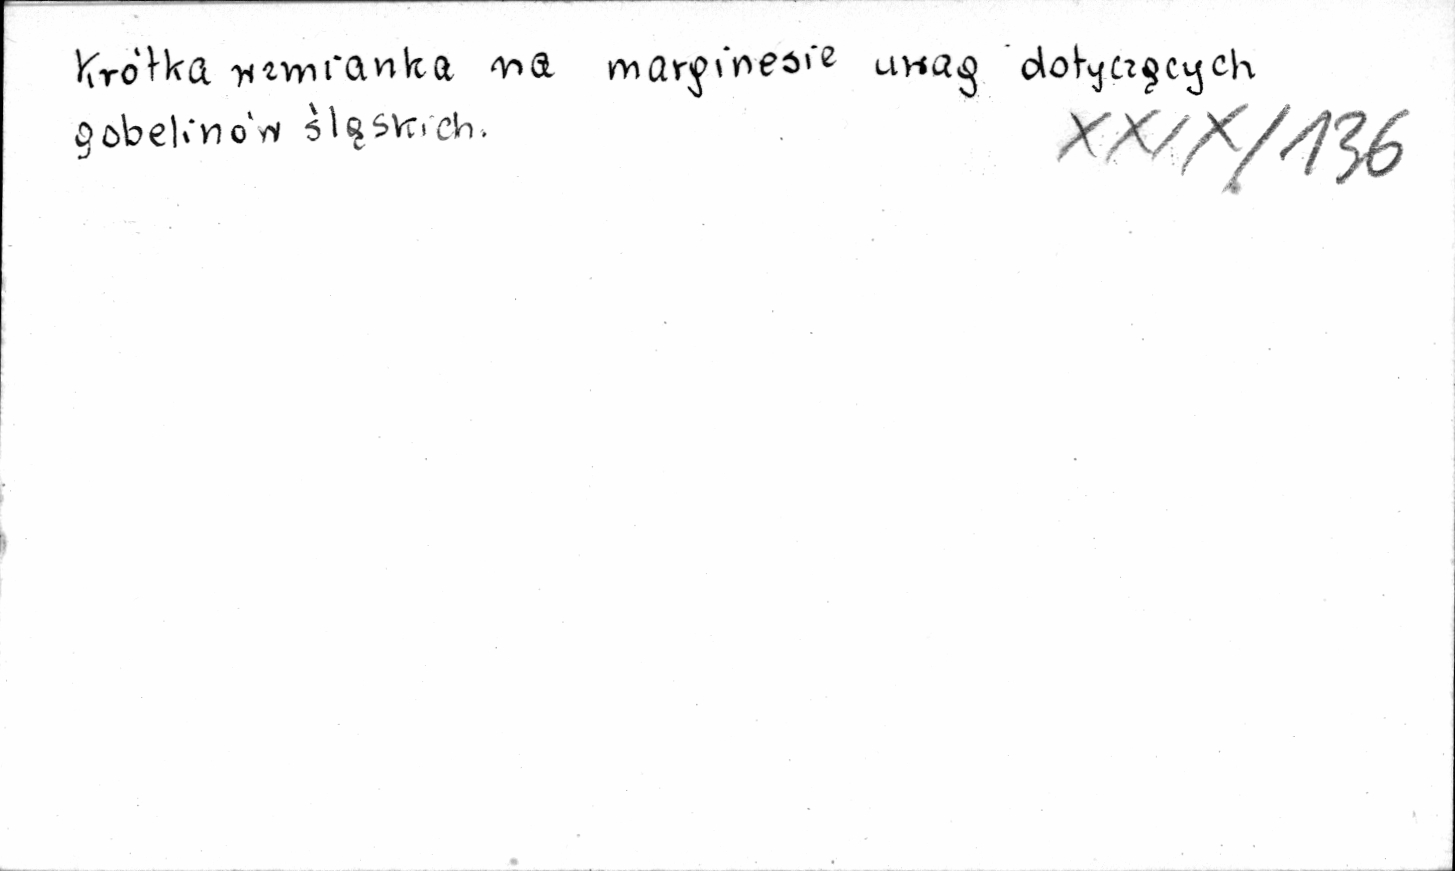 Krótka wzmianka na marginesie uwag dotyczących
gobelinów śląskich.
XXIX/136